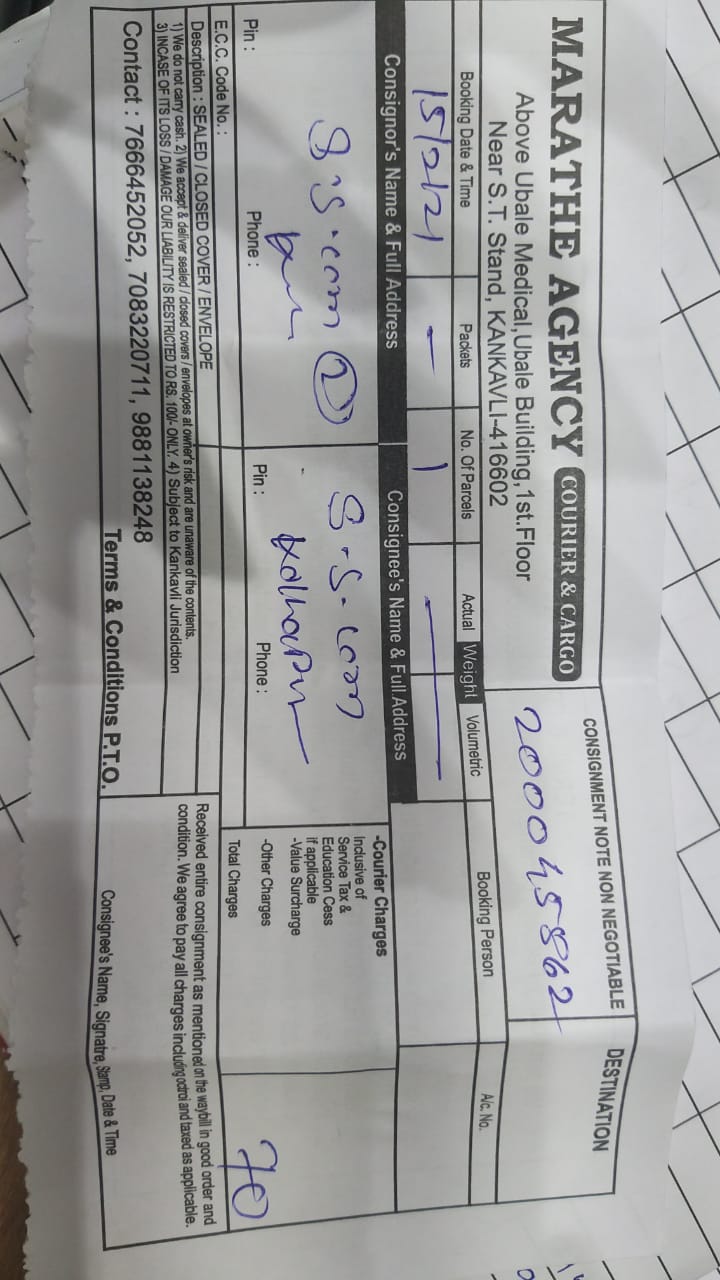 MARATHE AGENCY COURIER & CARGO
Above Ubale Medical, Ubale Building, 1st.Floor
Near S.T. Stand, KANKAVLI-416602
CONSIGNMENT NOTE NON NEGOTIABLE
200045862
DESTINATION
Booking Date & Time
Packets
No. Of Parcels
Actual Weight Volumetric
Booking Person
A/c. No.
15/2/21 — 1 —
Consignor's Name & Full Address
S.S. com 2
Pin :
Phone :
Consignee's Name & Full Address
S.S. com
Kolhapur
Pin :
Phone :
-Courier Charges
Inclusive of
Service Tax &
Education Cess
if applicable
-Value Surcharge
-Other Charges
Total Charges
70
E.C.C. Code No. :
Description : SEALED / CLOSED COVER / ENVELOPE
1) We do not carry cash. 2) We accept & deliver sealed / closed covers / envelopes at owner's risk and are unaware of the contents.
3) INCASE OF ITS LOSS / DAMAGE OUR LIABILITY IS RESTRICTED TO RS. 100/- ONLY. 4) Subject to Kankavli Jurisdiction
Contact : 7666452052, 7083220711, 9881138248
Terms & Conditions P.T.O.
Received entire consignment as mentioned on the waybill in good order and
condition. We agree to pay all charges including octroi and taxed as applicable.
Consignee's Name, Signatre, Stamp, Date & Time